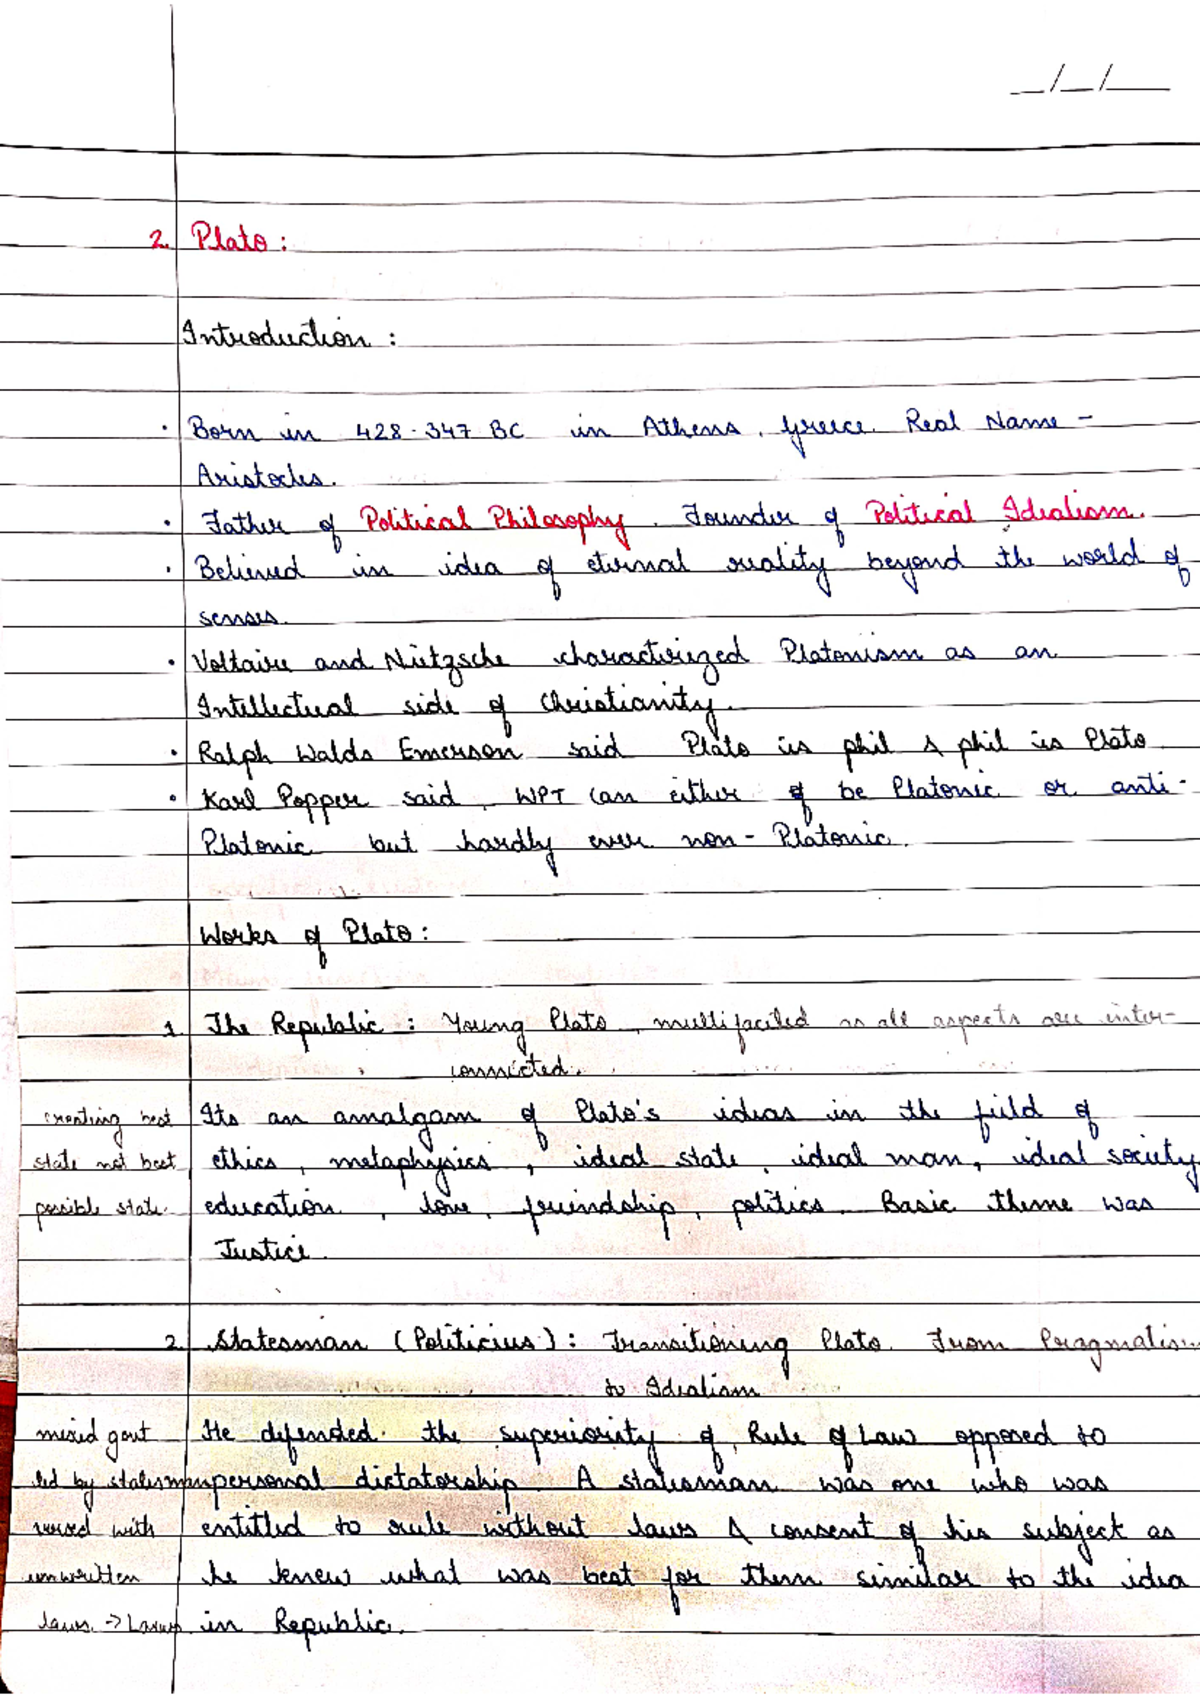 _/_/_
2. Plato :
Introduction :
• Born in 428-347 BC in Athens, Greece. Real Name -
Aristocles.
• Father of Political Philosophy. Founder of Political Idealism.
• Believed in idea of eternal reality beyond the world of
senses.
• Voltaire and Nietzsche characterized Platonism as an
Intellectual side of Christianity.
• Ralph Waldo Emerson said Plato is phil & phil is Plato
• Karl Popper said, WPT can either of be Platonic or anti-
Platonic but hardly ever non-Platonic.
Works of Plato :
1. The Republic : Young Plato, multifacited as all aspects are inter-
connected.
creating best
state not best
possible state.
Its an amalgam of Plato's ideas in the field of
ethics, metaphysics, ideal state, ideal man, ideal society
education, love, friendship, politics. Basic theme was
Justice.
2. Statesman (Politicius) : Transitioning Plato. From Pragmatism
to Idealism
mixed govt
led by statesman
versed with
unwritten
laws. → Laws
He defended the superiority of Rule of Law opposed to
personal dictatorship. A statesman was one who was
entitled to rule without laws & consent of his subject as
he knew what was best for them similar to the idea
in Republic.